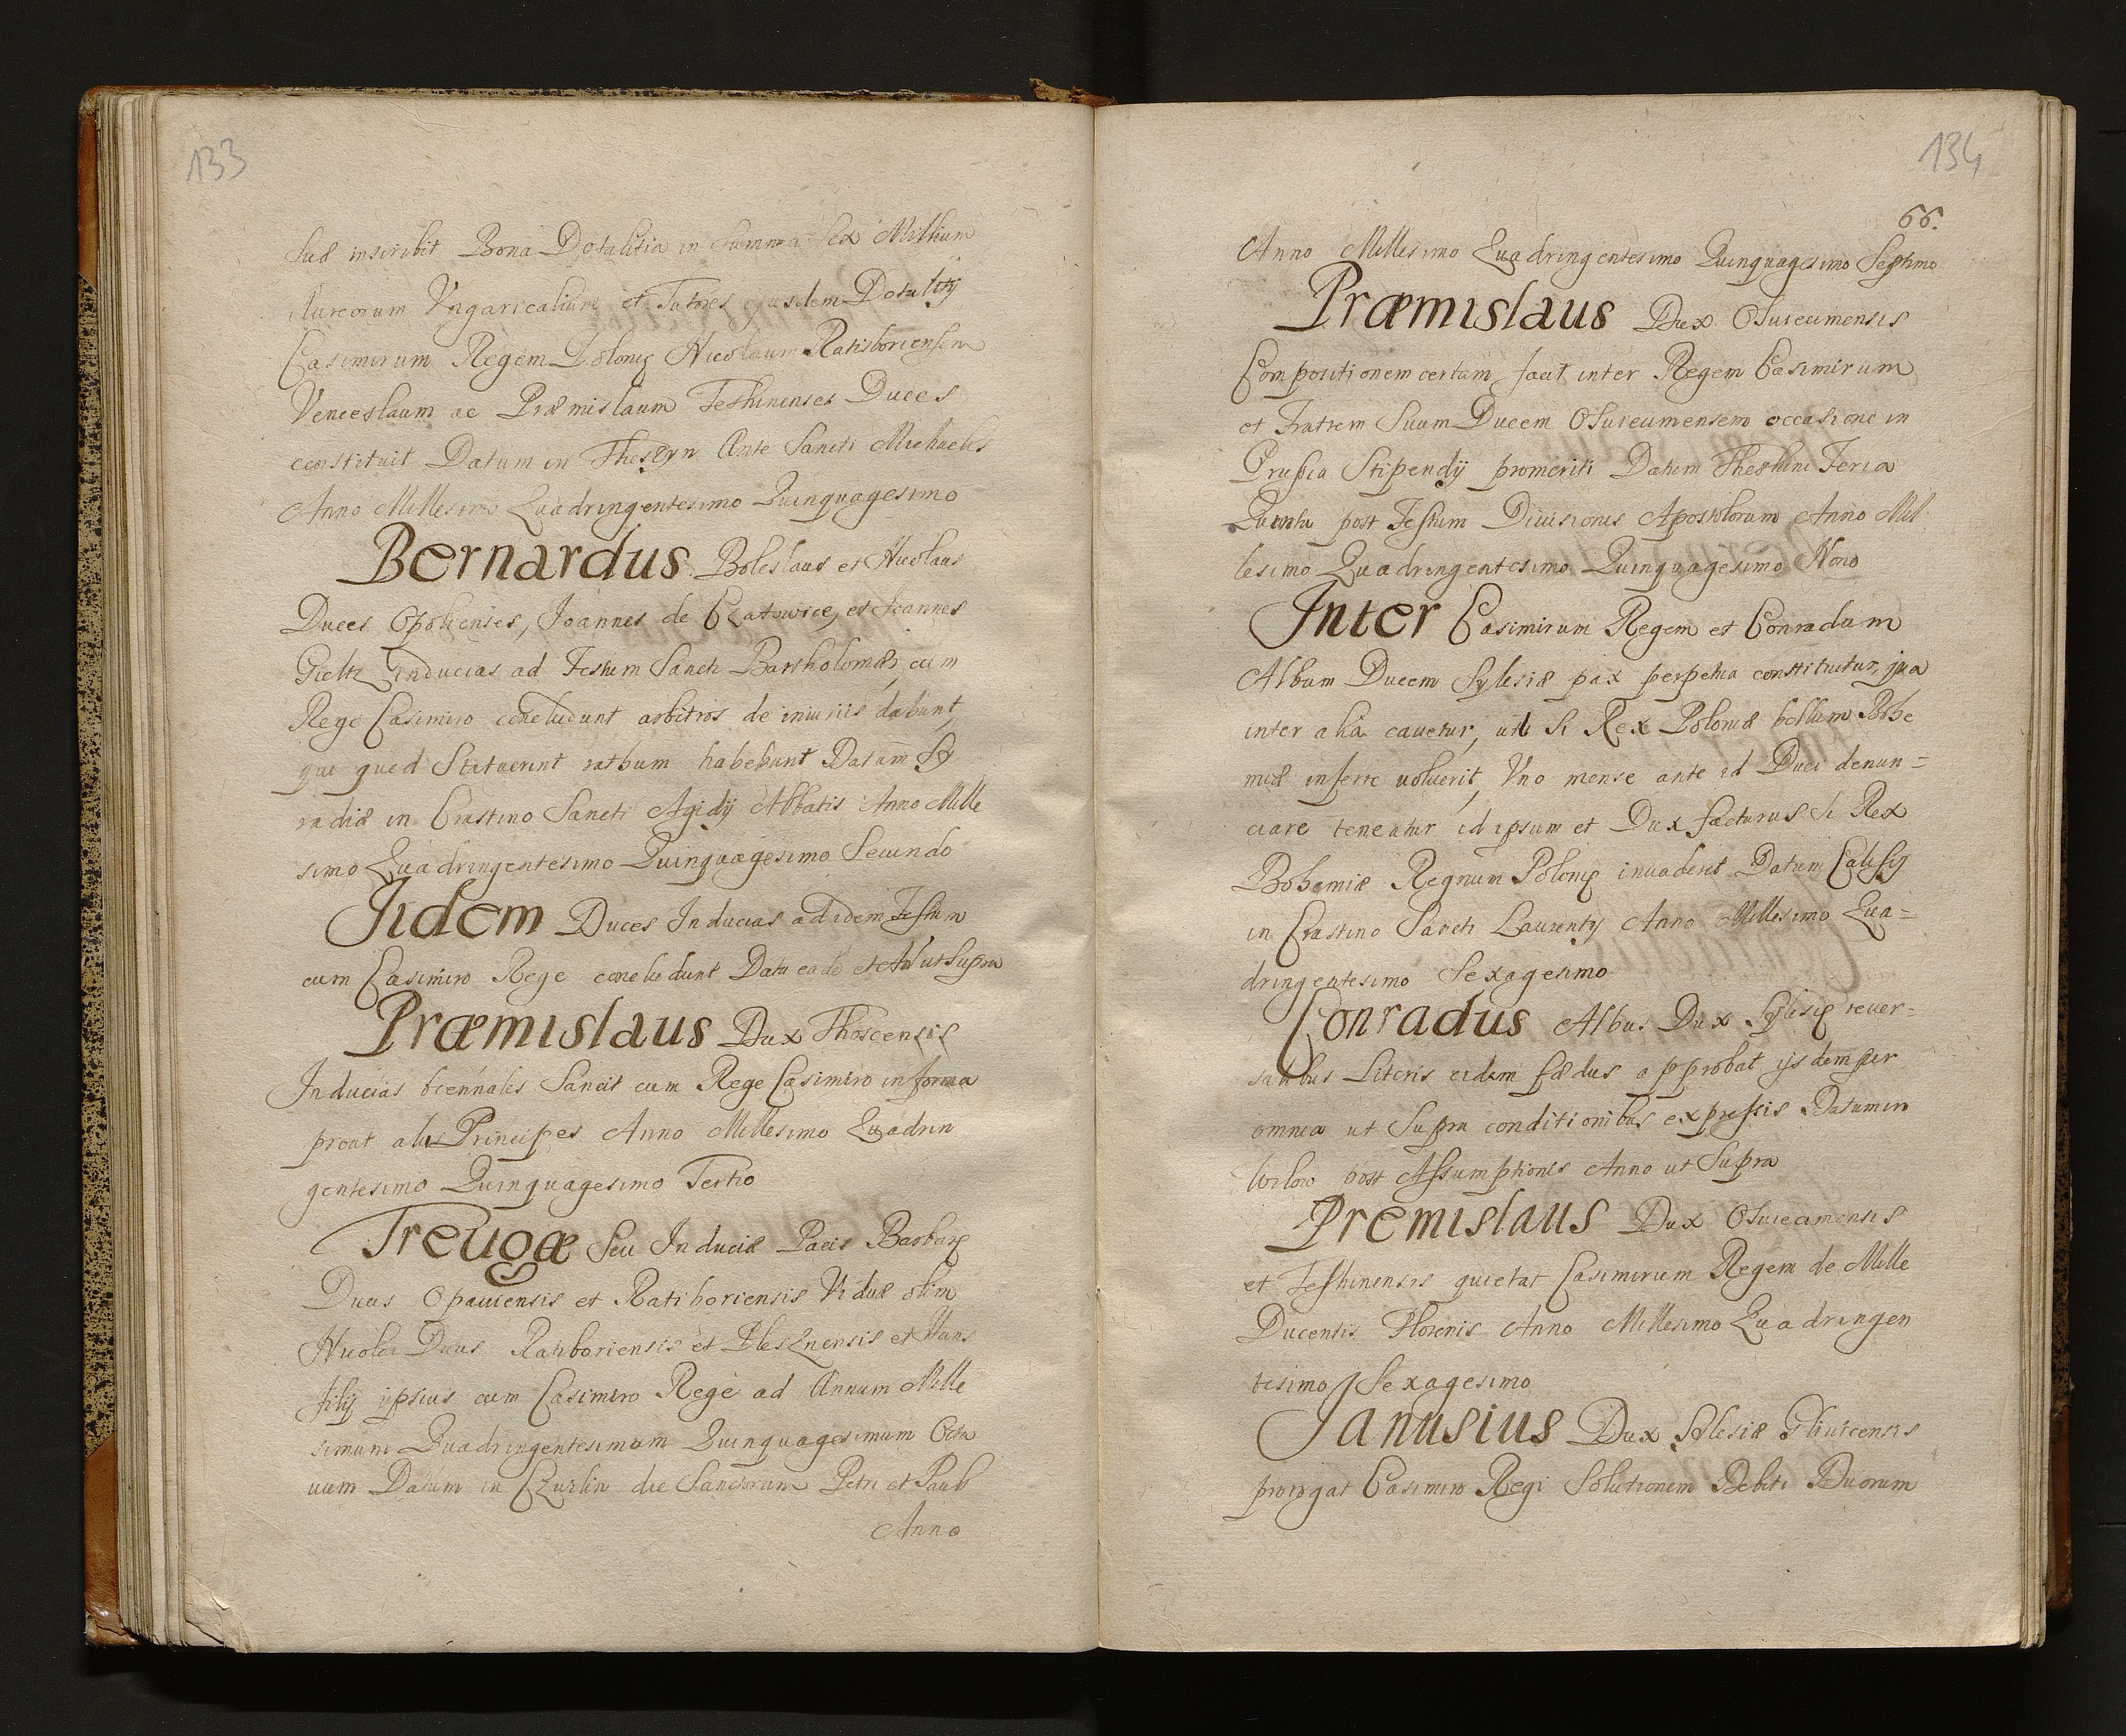 133
Suæ inscribit Bona Dotalitia in Summa Sex Millium
Aureorum Vngaricalium et Tutores ejusdem Dotalitij
Casimirum Regem Polonię Nicolaum Ratiboriensem
Venceslaum ac Præmislaum Teshinenses Duces
constituit Datum in Theszyn Ante Sancti Michaelis
Anno Millesimo Quadringentesimo Quinquagesimo
Bernardus Boleslaus et Nicolaus
Duces Opolienses, Joannes de Czatowice, et Joannes
inducias ad Festum Sancti Bartholomæi, cum
Rege Casimiro concludunt arbitros de iniuriis dabunt,
qui quod Statuerint rathum habebunt Datum Sy
radiæ in Crastino Sancti Agidij Abbatis Anno Mille
simo Quadringentesimo Quinquagesimo Secundo
Jidem Duces Inducias ad idem Festum
cum Casimiro Rege concludunt Datu eadē ut Supra
Præmislaus Dux Thoscensis
Inducias biennales Sancit cum Rege Casimiro in forma
prout alij Principes Anno Millesimo Quadrin
gentesimo Quinquagesimo Tertio
Treugæ Seu Induciæ Pacis Barbarę
Ducis Opauiensis et Ratiboriensis Viduæ olim
Nicolai Ducis Ratiboriensis et Plesznensis et Hans
filij ipsius cum Casimiro Rege ad Annum Mille
simum Quadringentesimum Quinquagesimum Octa
uum Datum in die Sanctorum Petri et Pauli
Anno
134
66.
Anno Millesimo Quadringentesimo Quinquagesimo Septimo
Præmislaus Dux Osuieumensis
Compositionem certam facit inter Regem Casimirum
et Fratrem Suum Ducem Osuieumensem occasione in
Prussia Stipendij promeriti Datum Theshini Feria
Quinta post Festum Diuisionis Apostolorum Anno Mil
lesimo Quadringentesimo Quinquagesimo Nono
Inter Casimirum Regem et Conradum
Album Ducem Sylesiæ pax perpetua constituitur, qua
inter alia cauetur, uti Si Rex Poloniæ bellum Bohe
miæ inferre uoluerit, Vno mense ante id Duci denun=
ciare teneatur id ipsum et Dux facturus Si Rex
Bohemiæ Regnum Polonię inuaderet Datum Calissij
in Crastino Sancti Laurentij Anno Millesimo Qua=
dringentesimo Sexagesimo
Conradus Albus Dux Sylesię reuer=
salibus Literis eidem fædus approbat ijsdem per
omnia ut Supra conditionibus expressis Datum in
post Assumptionis Anno ut Supra
Premislaus Dux Osuieamensis
et Teshinensis quietat Casimirum Regem de Mille
Ducentis Florenis Anno Millesimo Quadringen
tesimo Sexagesimo
Janusius Dux Sylesiæ Gliuicensis
prorogat Casimiro Regi Solutionem Debiti Duorum